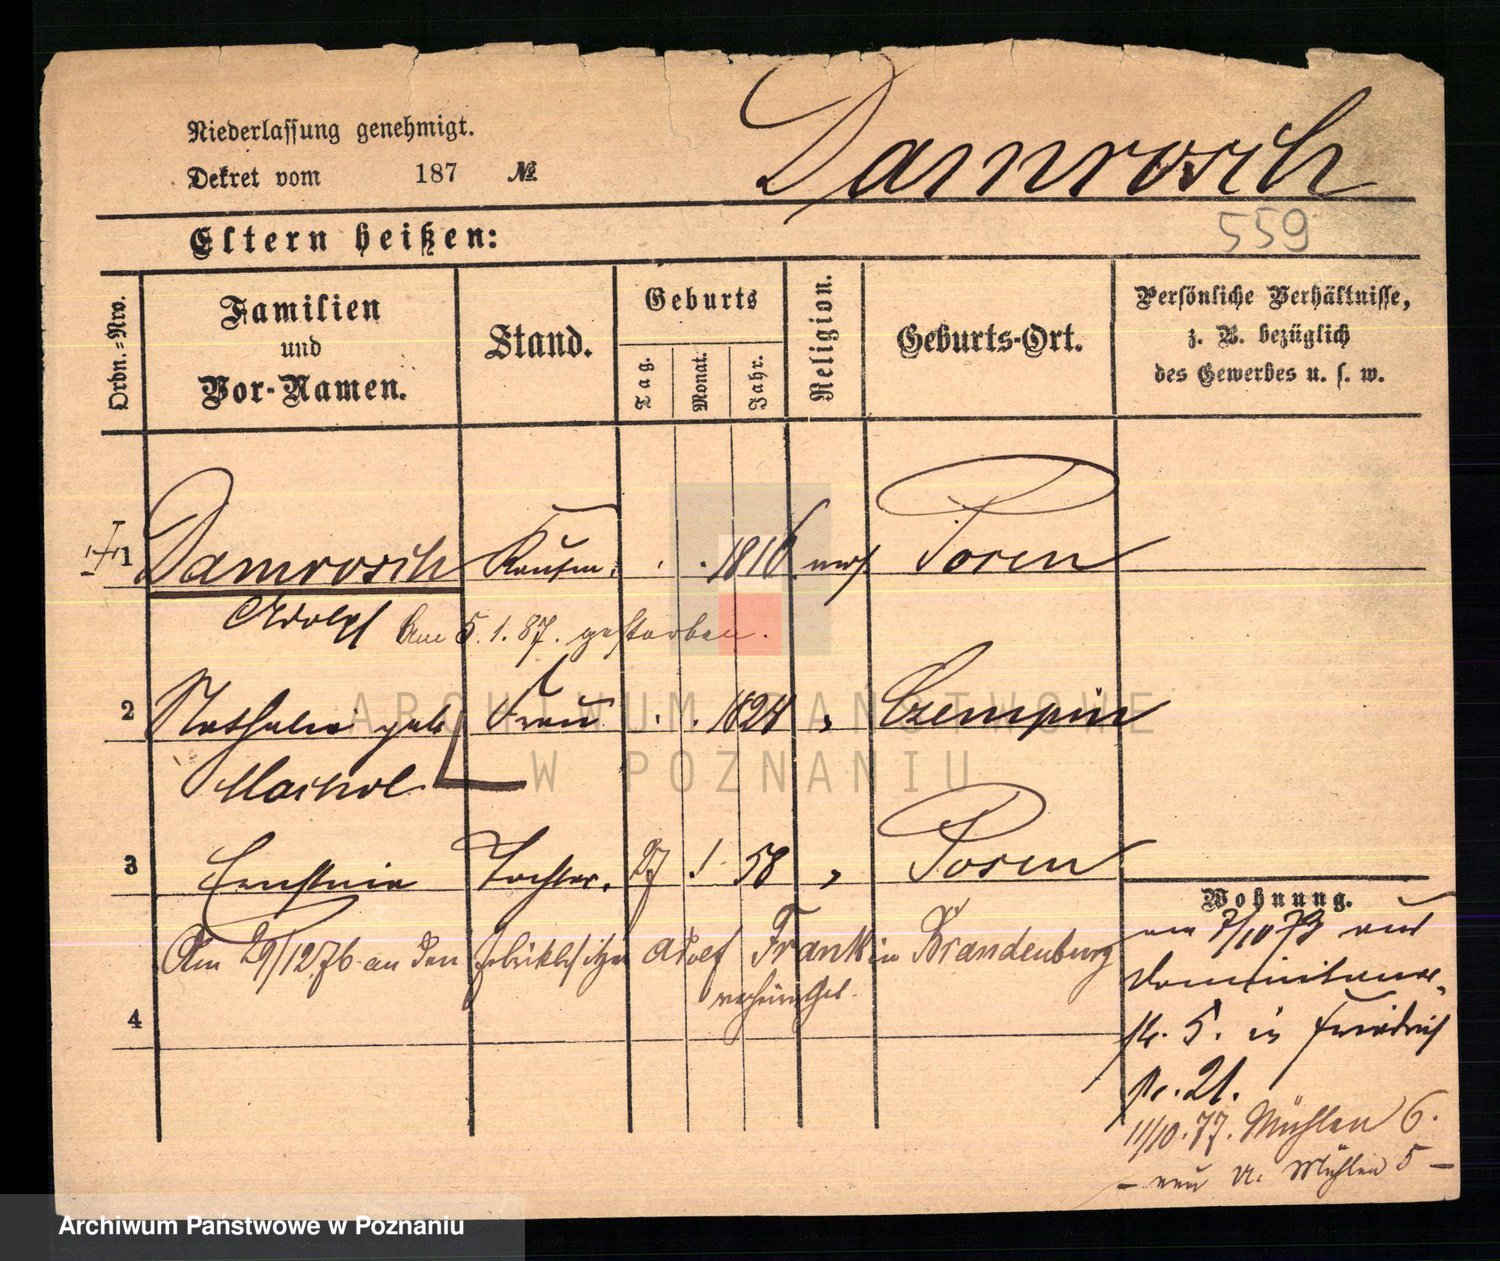 Damrosch
Niederlassung genehmigt.
Dekret vom 187 №
559
Eltern heißen:
Ordn.-Nro.
Familien
und
Vor-Namen.
Stand.
Geburts
Tag.
Monat.
Jahr.
Religion.
Geburts-Ort.
Persönliche Verhältnisse,
z. B. bezüglich
des Gewerbes u. s. w.
1 Damrosch Kaufm. . . 1816 mos Posen
Adolph Am 5.1.87. gestorben.
2 Nathalie geb Frau . . 1824 " Czempin
3 Ernstine Tochter. 27 1 58 " Posen
Wohnung.
Am 29/12 76 an den Adolf Frank in Brandenburg
verheirathet.
am 7/10 73 aus
Dominikaner
str. 5. in Friedrich
4
21.
11/10.77. Mühlen 6.
– neu Mühlen 5 –
ARCHIWUM PAŃSTWOWE
W POZNANIU
Archiwum Państwowe w Poznaniu